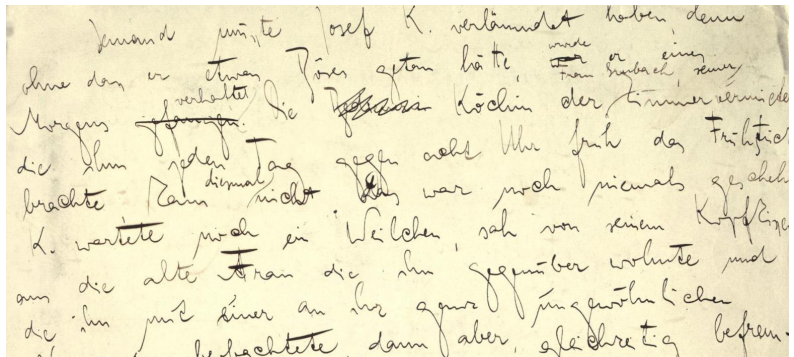 Jemand musste Josef K. verläumdet haben, denn
ohne dass er etwas Böses getan hätte, wurde er eines
Morgens verhaftet. Die Köchin der Frau Grubach, seiner Zimmervermiete
die ihm jeden Tag gegen acht Uhr früh das Frühstück
brachte kam diesmal nicht. Das war noch niemals gescheh
K. wartete noch ein Weilchen, sah von seinem Kopfkissen
aus die alte Frau die ihm gegenüber wohnte und
die ihn mit einer an ihr ganz ungewöhnlichen
beobachtete, dann aber, gleichzeitig befrem-